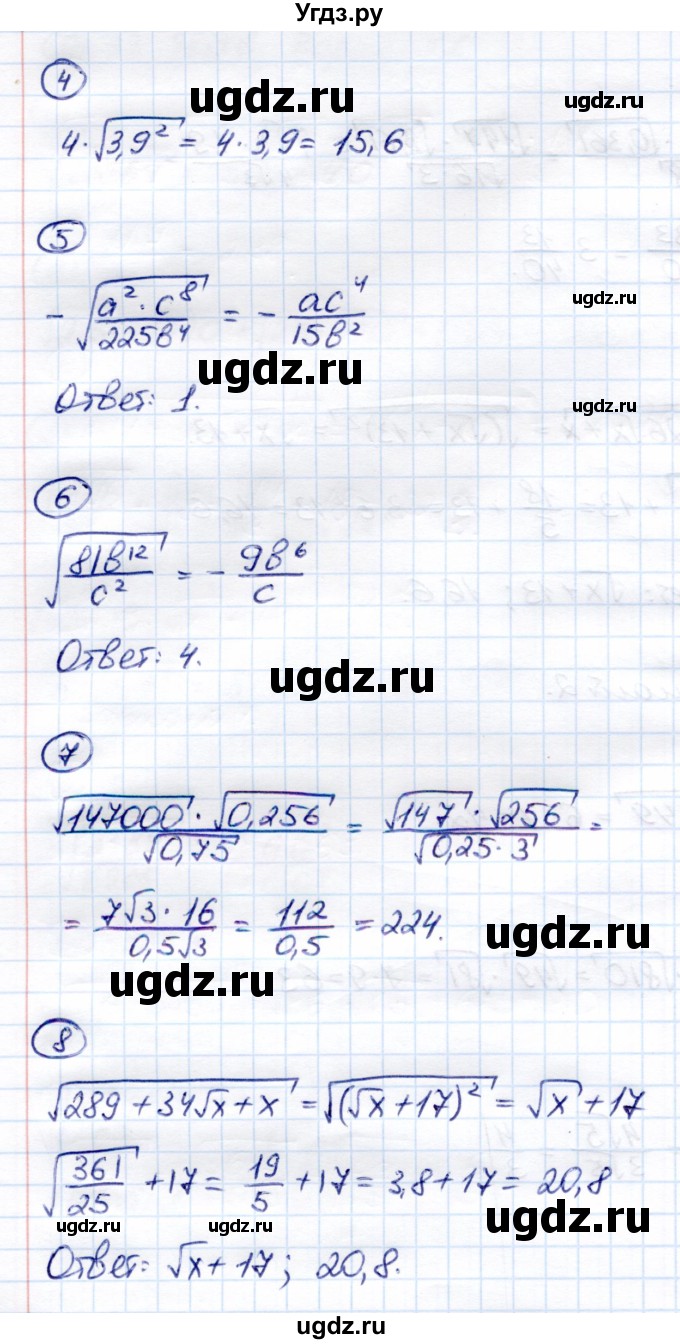 Угдз.ру
④ ugdz.ru ugdz.ru
4·√3,9² = 4·3,9 = 15,6
ugdz.ru
⑤
-√(a²·c⁸/225b⁴) = -ac⁴/15b²
ugdz.ru
ugdz.ru
Ответ: 1.
ugdz.ru
⑥
√(81b¹²/c²) = -9b⁶/c
Ответ: 4.
ugdz.ru
⑦
√147000·√0,256/√0,75 = √147·√256/√0,25·3 =
= 7√3·16/0,5√3 = 112/0,5 = 224.
ugdz.ru
ugdz.ru
⑧
√289+34√x+x = √(√x+17)² = √x+17
√(361/25)+17 = 19/5+17 = 3,8+17 = 20,8
ugdz.ru ugdz.ru ugdz.ru
Ответ: √x+17; 20,8.
ugdz.ru